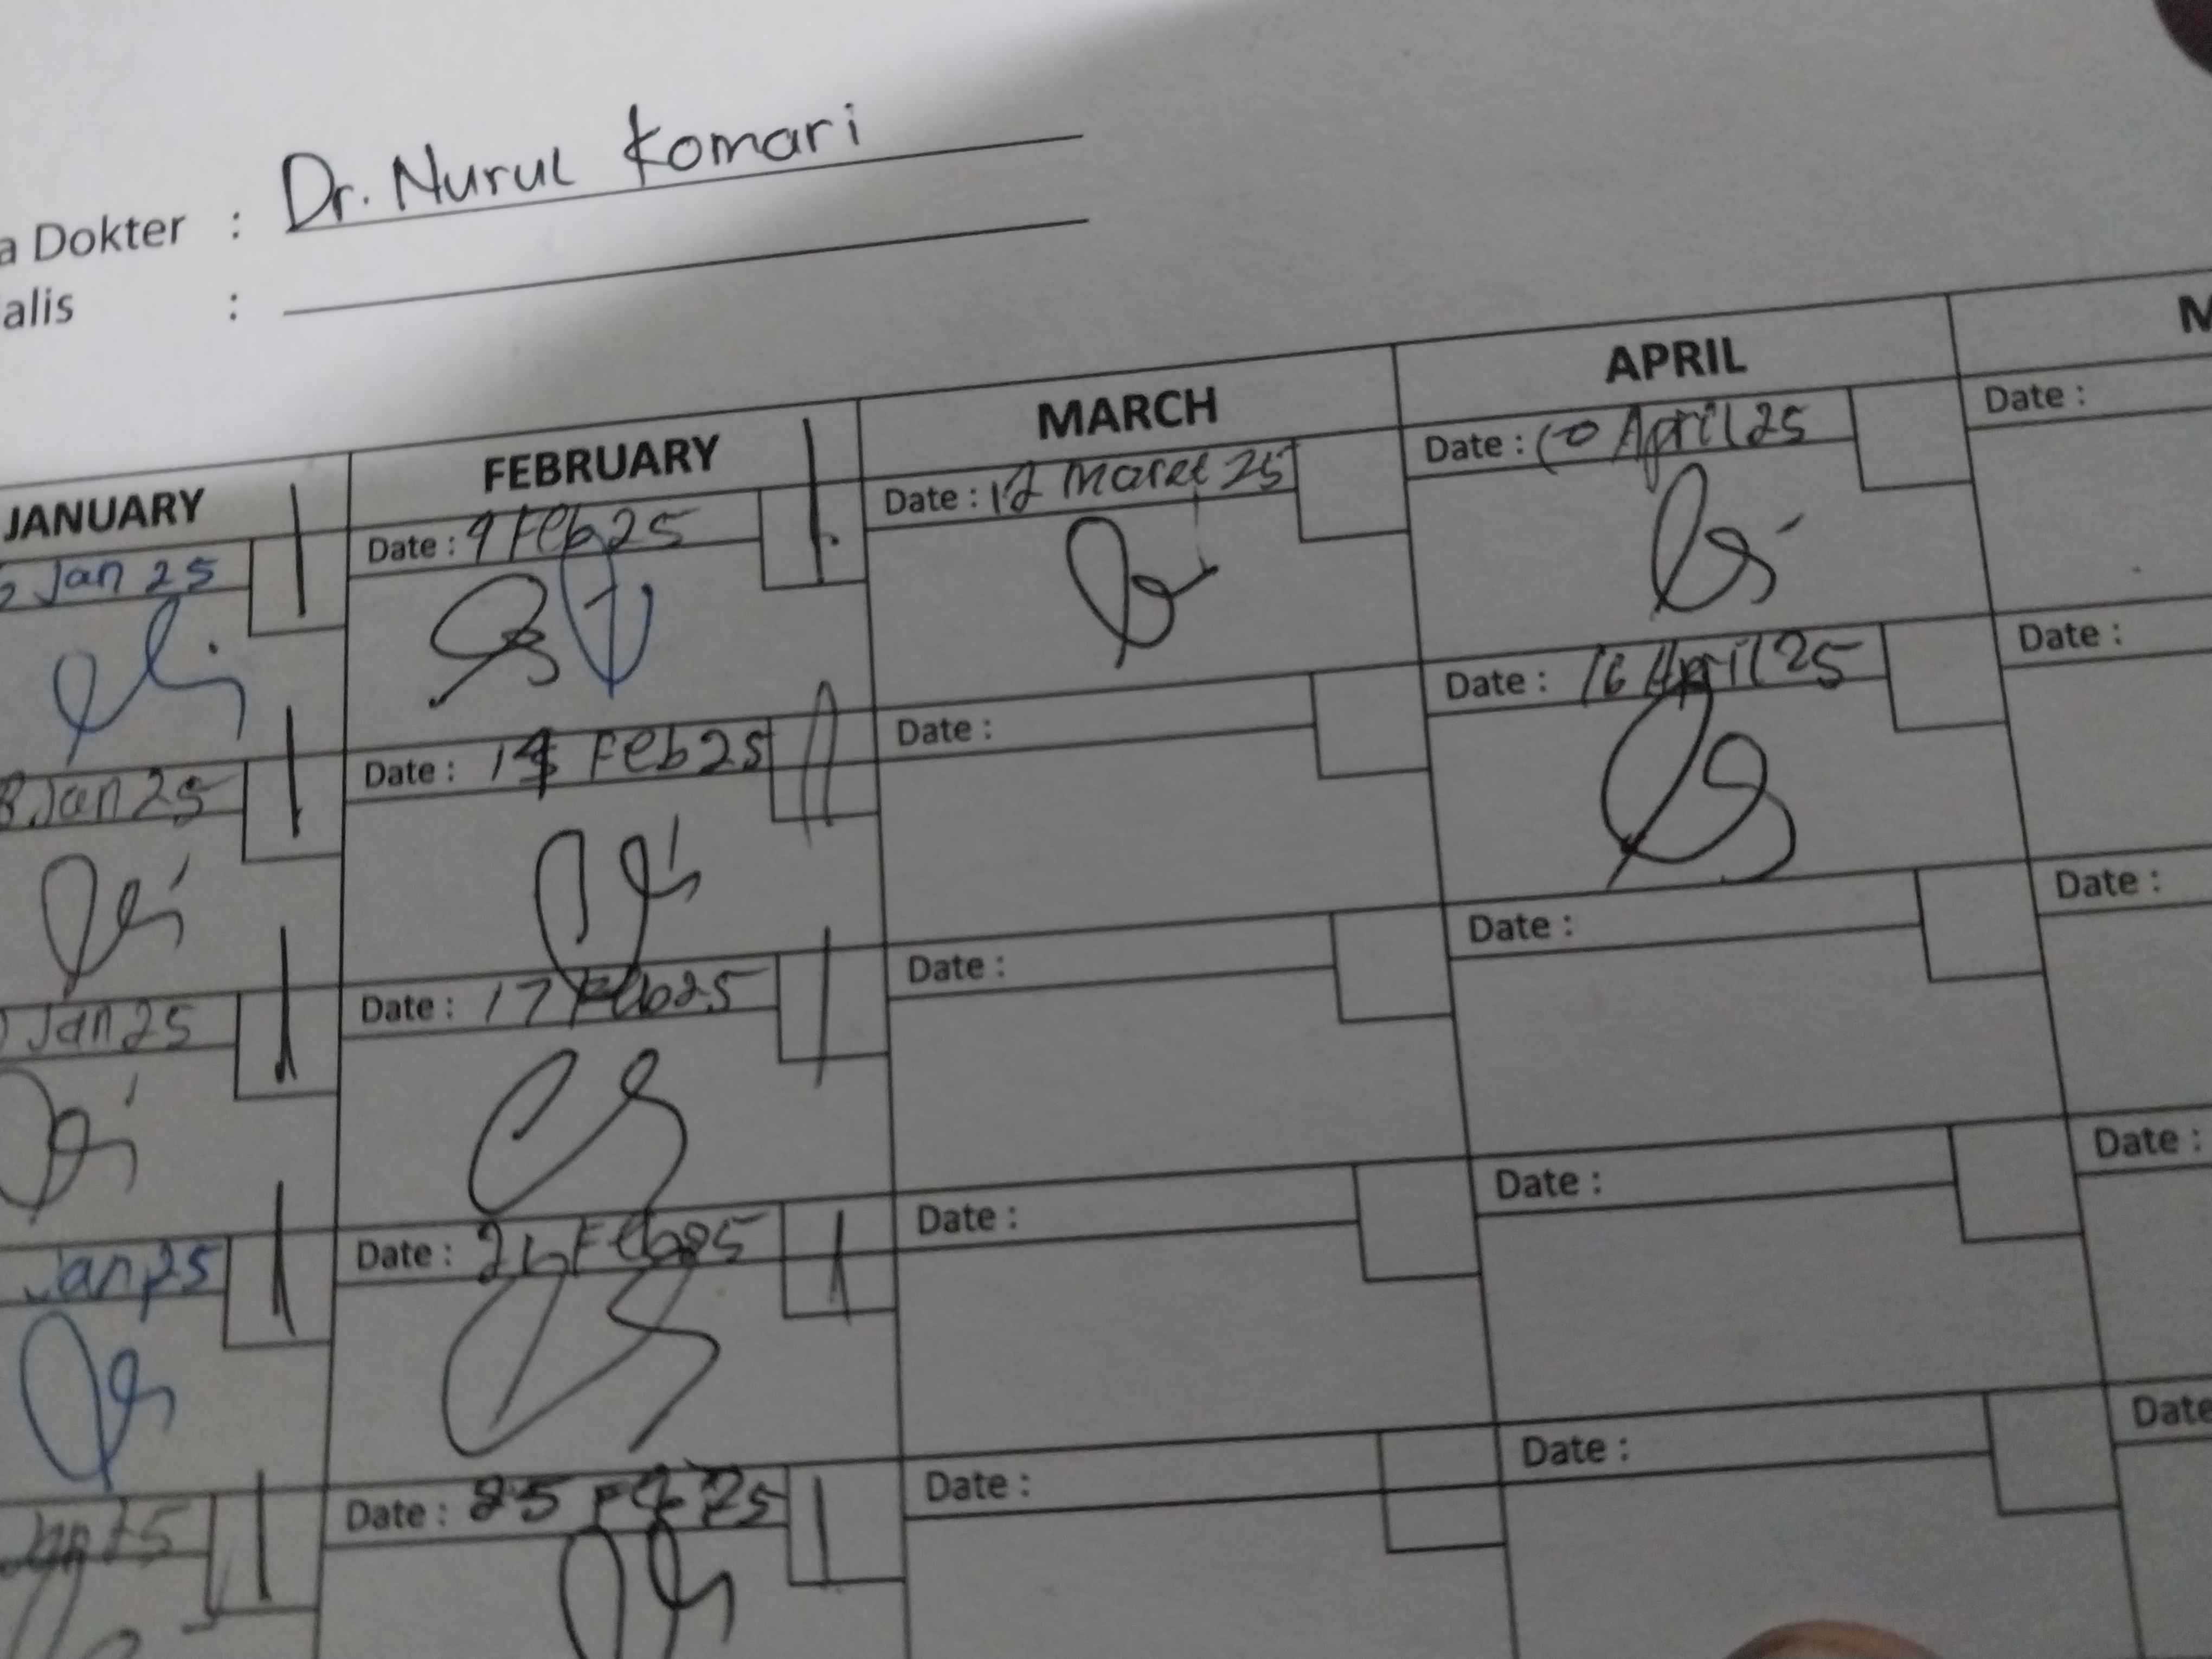 a Dokter : Dr. Nurul Komari
alis :
JANUARY FEBRUARY MARCH APRIL M
Jan 25 Date : 9 Feb 25 Date : Maret 25 Date : 10 April 25 Date :
8 Jan 25 Date : Feb 25 Date : Date : 16 April 25 Date :
Jan 25 Date : 17 Feb 25 Date : Date : Date :
Jan 25 Date : Feb 25 Date : Date : Date :
Date : 25 Date : Date : Date